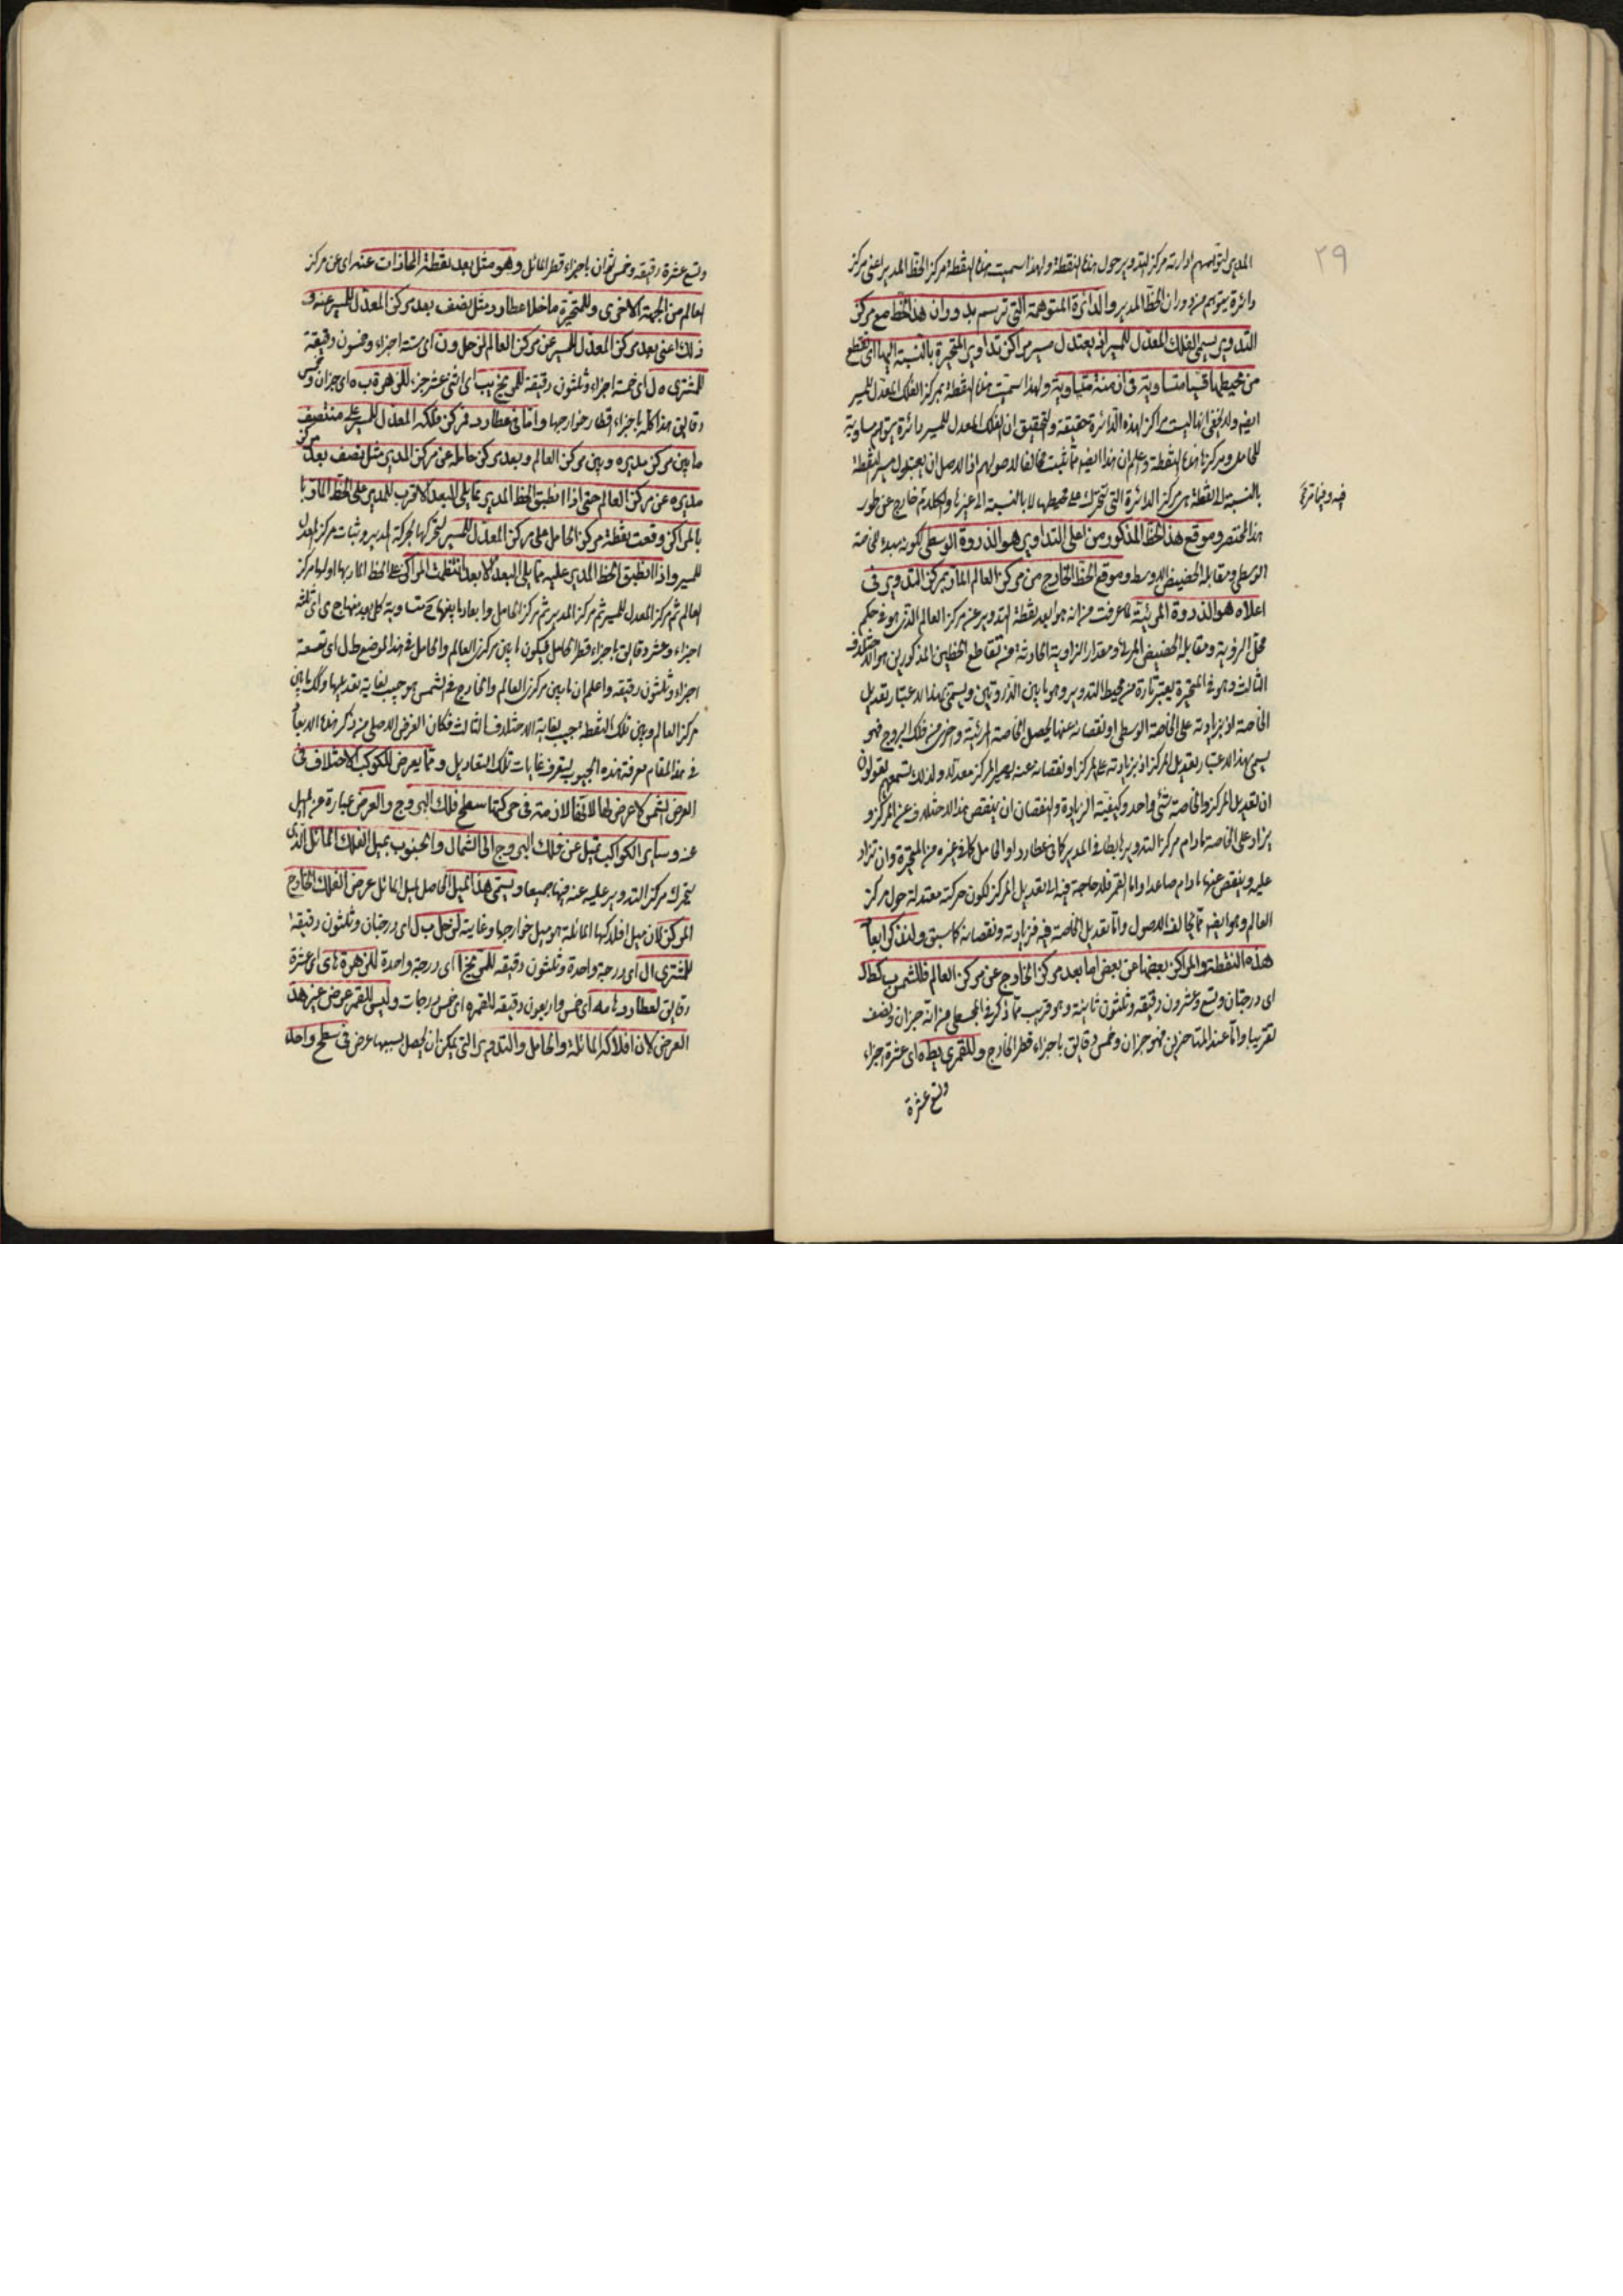 ٢٩
المدير لتوهمهم ادارته مركز التدوير حول هذه النقطة ولهذا سميت هذه النقطة مركز الخط المدير اعنى مركز
دائرة يتوهم من دوران الخط المدير والدائرة المتوهمة التى ترسم بدوران هذا الخط مع مركز
التدوير يسمى الفلك المعدل للمسير اذ به يعتدل مسير مراكز تداوير المتحيرة بالنسبة اليها اى تقطع
من محيطها قسيا متساوية فى ازمنة متساوية ولهذا سميت هذه النقطة بمركز الفلك المعدل للمسير
ايضا ولا يخفى انها ليست مركز لهذه الدائرة حقيقة والتحقيق ان الفلك المعدل للمسير دائرة يتوهم مساوية
للحامل ومركزها هذه النقطة واعلم ان هذا ايضا مما يثبت مخالفا لاصولهم اذ الاصل ان يعتدل مسير النقطة
بالنسبة الى نقطة هى مركز الدائرة التى تتحرك على محيطها لا بالنسبة الى غيرها والكلام خارج عن طور
هذا المختصر وموقع هذا الخط المذكور من اعلى التداوير هو الذروة الوسطى لكونه مبدء الخاصة
الوسطى ومقابله الحضيض الاوسط وموقع الخط الخارج من مركز العالم المار بمركز التدوير فى
اعلاه هو الذروة المرئية لما عرفت من انه هو ابعد نقطة التدوير عن مركز العالم الذى هو فى حكم
محل الرؤية ومقابله الحضيض المرئى ومقدار الزاوية الحادثة من تقاطع الخطين المذكورين هو الاختلاف
الثالث وهو فى المتحيرة يعتبر تارة من محيط التدوير وهو ما بين الذروتين ويسمى بهذا الاعتبار تعديل
الخاصة اذ بزيادته على الخاصة الوسطى او نقصانه عنها يحصل الخاصة المرئية واخرى من فلك البروج فهو
يسمى بهذا الاعتبار تعديل المركز اذ بزيادته على المركز او نقصانه عنه يصير المركز معدلا ولذلك تسمعهم يقولون
ان تعديل المركز والخاصة شئ واحد وكيفية الزيادة والنقصان ان ينقص هذا الاختلاف عن المركز و
يزاد على الخاصة ما دام مركز التدوير هابطا فى المدير كما فى عطارد او الحامل كما فى غيره من المتحيرة وان تزاد
عليه وينقص عنها ما دام صاعدا واما القمر فلا حاجة فيه الى تعديل المركز لكون حركته معتدلة حول مركز
العالم وهو ايضا مما يخالف الاصول واما تعديل الخاصة فيه فزيادته ونقصانه كما سبق ولنذكر ابعاد
هذه النقطة والمراكز بعضها عن بعض اما بعد مركز الخارج عن مركز العالم فللشمس ب كط ل
اى درجتان وتسع وعشرون دقيقة وثلثون ثانية وهو قريب مما ذكر فى المجسطى من انه جزان ونصف
تقريبا واما عند المتاخرين فهو جزان وخمس دقايق باجزاء قطر الخارج وللقمر ى يط ه اى عشرة اجزاء
وتسع عشرة
وتسع عشرة دقيقة وخمس ثوان باجزاء قطر المائل وهو مثل بعد نقطة المحاذات عنه اى عن مركز
العالم من الجهة الاخرى وللمتحيرة ما خلا عطارد مثل نصف بعد مركز المعدل للمسير عنه و
ذلك اعنى بعد مركز المعدل للمسير عن مركز العالم لزحل و ن اى ستة اجزاء وخمسون دقيقة
للمشترى ه ل اى خمسة اجزاء وثلثون دقيقة للمريخ يب اى اثنى عشر جزء للزهرة ب ه اى جزان وخمس
دقايق هذا كله باجزاء اقطار خوارجها واما فى عطارد فمركز فلكه المعدل للمسير على منتصف
ما بين مركز مديره وبين مركز العالم وبعد مركز حامله عن مركز المدير مثل نصف بعد مركز
مديره عن مركز العالم حتى اذا انطبق الخط المدير مما يلى البعد الاقرب للمدير على الخط المار با
بالمراكز وقعت نقطة مركز الحامل على مركز المعدل للمسير لتحركها بحركة المدير وثبات مركز المعدل
للمسير واذا انطبق الخط المدير عليه مما يلى البعد الابعد انتظمت المراكز على الخط المار بها اولها مركز
العالم ثم مركز المعدل للمسير ثم مركز المدير ثم مركز الحامل وابعاد ما بينها ح متساوية كل بعد منها ج ى اى ثلثة
اجزاء وعشر دقايق باجزاء قطر الحامل فيكون ما بين مركزى العالم والحامل فى هذا الموضع ط ل اى تسعة
اجزاء وثلثون دقيقة واعلم ان ما بين مركزى العالم والخارج فى الشمس هو جيب لغاية تعديلها وكذلك ما بين
مركز العالم وبين تلك النقطة جيب لغاية الاختلاف الثالث فكان الغرض الاصلى من ذكر هذه الابعاد
فى هذا المقام معرفة هذه الجيوب ليتعرف غايات تلك التعاديل ومما يعرض للكوكب الاختلاف فى
العرض الشمس لا عرض لها لانها لازمة فى حركتها سطح فلك البروج والعرض عبارة عن الميل
عنه وساير الكواكب تميل عن فلك البروج الى الشمال والجنوب بميل الفلك المائل الذى
يتحرك مركز التدوير عليه عنه فيها جميعا ويسمى هذا الميل الحاصل لميل المائل عرض الفلك الخارج
المركز لان ميل افلاكها المائلة هو ميل خوارجها وغايته لزحل ب ل اى درجتان وثلثون دقيقة
للمشترى ا ل اى درجة واحدة وثلثون دقيقة للمريخ ا اى درجة واحدة للزهرة ى اى عشرة
دقايق لعطارد مه اى خمس واربعون دقيقة للقمر ه اى خمس درجات وليس للقمر عرض غير هذا
العرض لان افلاكه المائلة والحامل والتدوير التى يمكن ان يحصل بسببها عرض فى سطح واحد